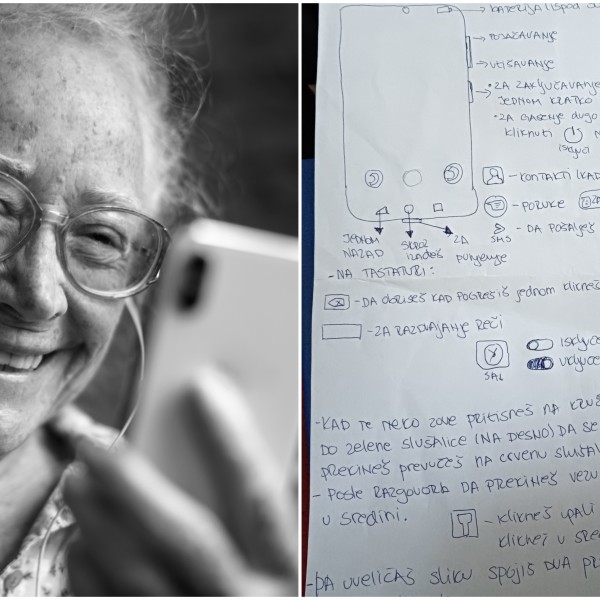 → BATERIJA ISPOD
→ POJAČAVANJE
→ UTIŠAVANJE
→ • ZA ZAKLJUČAVANJE
JEDNOM KRATKO
• ZA GAŠENJE DUGO
kliknuti
isključ
- KONTAKTI (KAD
- PORUKE
SMS
- DA POŠALJEŠ
JEDNOM NAZAD
SKROZ IZAĐEŠ
ZA PUNJENJE
- NA TASTATURI:
- DA obrišeš KAD POGREŠIŠ jednom klikneš
- ZA RAZDVAJANJE REČI
SAT
isključe
uključe
- KAD TE NEKO ZOVE PRITISNEŠ NA KRUŽ
DO zelene SLUŠALICE (NA DESNO) DA SE
PREKINEŠ PREVUČEŠ NA CRVENU SLUŠAL
- POSLE RAZGOVORA DA PREKINEŠ VEZU
U SREDINI.
- KLIKNEŠ UPALI
KLIKNEŠ U SRED
- DA UVELIČAŠ SLIKU SPOJIŠ DVA PR